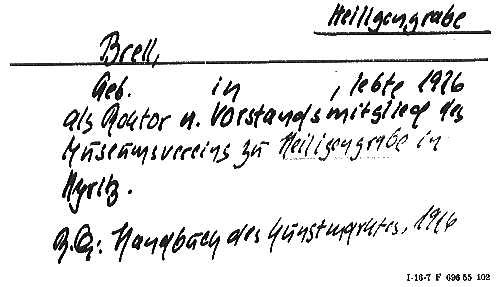 Heiligengrabe
Brell,
Geb. in , lebte 1926
als Rektor u. Vorstandsmitglied des
Museumsvereins zu Heiligengrabe in
Kyritz.
Handbuch des Kunstmarktes, 1926
I-16-7 F 696 55 102